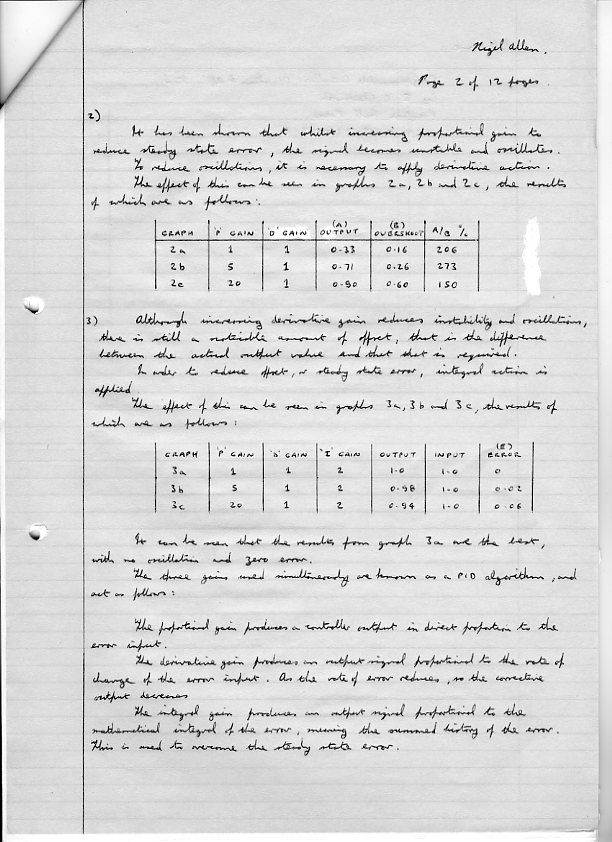 Nigel Allen.
Page 2 of 12 pages.
2)
It has been shown that whilst increasing proportional gain to
reduce steady state error, the signal becomes unstable and oscillates.
To reduce oscillations, it is necessary to apply derivative action.
The effect of this can be seen in graphs 2a, 2b and 2c, the results
of which are as follows:
GRAPH 'P' GAIN 'D' GAIN (A) OUTPUT (B) OVERSHOOT A/B %
2a 1 1 0.33 0.16 206
2b 5 1 0.71 0.26 273
2c 20 1 0.90 0.60 150
3) Although increasing derivative gain reduces instability and oscillations,
there is still a noticable amount of offset, that is the difference
between the actual output value and that that is required.
In order to reduce offset, or steady state error, integral action is
applied
The effect of this can be seen in graphs 3a, 3b and 3c, the results of
which are as follows:
GRAPH 'P' GAIN 'D' GAIN 'I' GAIN OUTPUT INPUT (E) ERROR
3a 1 1 2 1.0 1.0 0
3b 5 1 2 0.98 1.0 0.02
3c 20 1 2 0.94 1.0 0.06
It can be seen that the results from graph 3a are the best,
with no oscillation and zero error.
The three gains used simultaneously are known as a PID algorithm, and
act as follows:
The proportional gain produces a controller output in direct proportion to the
error input.
The derivative gain produces an output signal proportional to the rate of
change of the error input. As the rate of error reduces, so the corrective
output decreases
The integral gain produces an output signal proportional to the
mathematical integral of the error, meaning the summed history of the error.
This is used to overcome the steady state error.